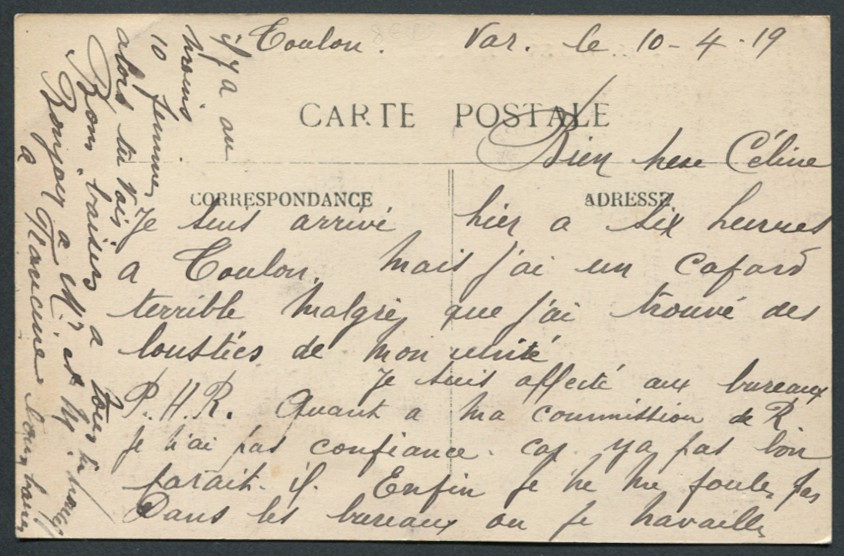 Toulon. Var. le 10-4-19
CARTE POSTALE
Bien chere Céline
CORRESPONDANCE
ADRESSE
Je suis arrivé hier a six heures
a Toulon. Mais j'ai un cafard
terrible malgré que j'ai trouvé des
de mon unité
Je suis affecté aux bureaux
P.H.R. Quant a ma commission de R
Je n'ai pas confiance. Car ya pas bon
parait-il. Enfin Je ne me foule pas
Dans les bureaux ou Je travaille
il y a au
moins
10 femmes
alors tu vois
Bons baisers a tous
Bonjour a Mr et Mme
a Francine